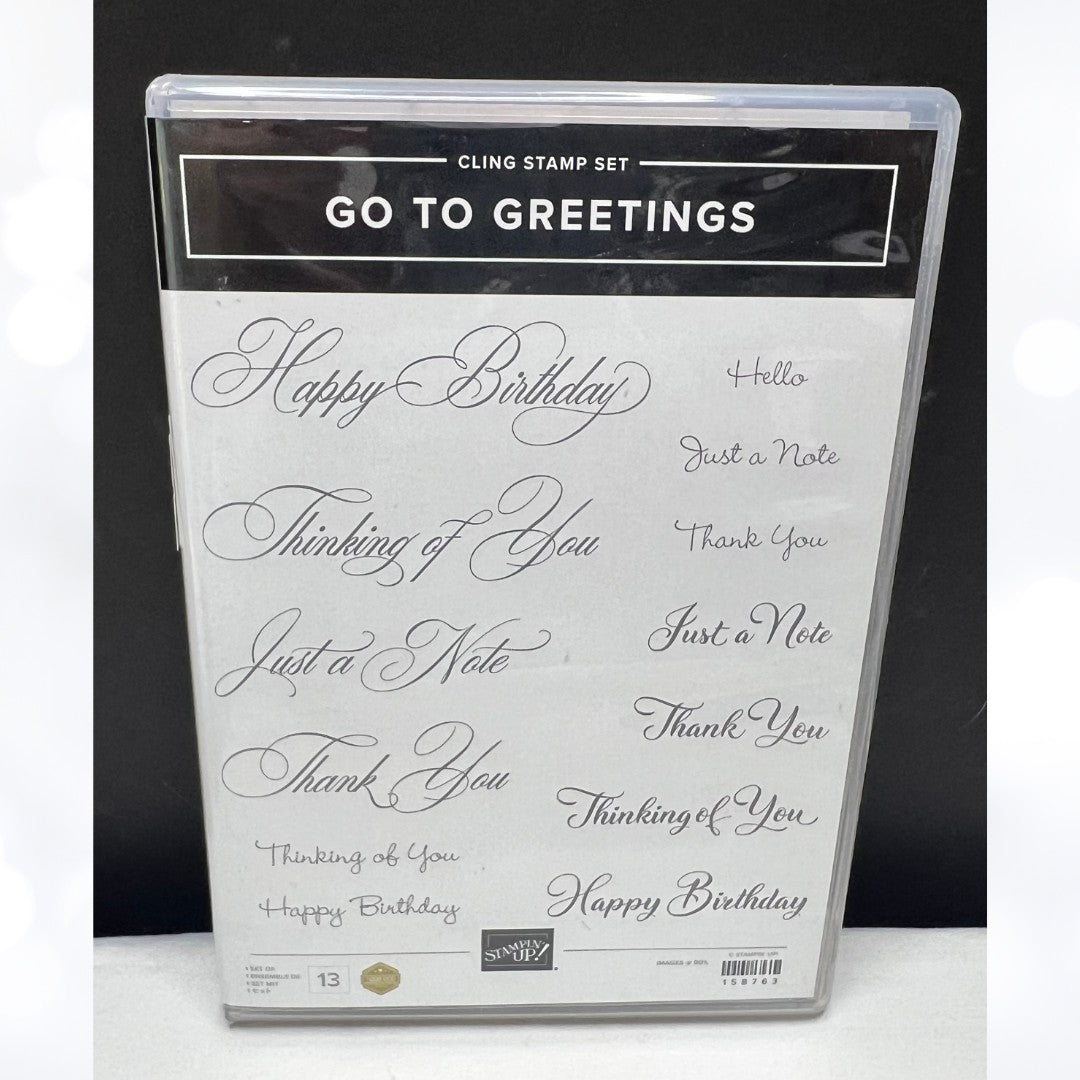 CLING STAMP SET
GO TO GREETINGS
Happy Birthday
Thinking of You
Just a Note
Thank You
Thinking of You
Happy Birthday
Hello
Just a Note
Thank You
Just a Note
Thank You
Thinking of You
Happy Birthday
STAMPIN' UP!
1 SET OF
1 ENSEMBLE DE
1 SET MIT
13
IMAGES @ 90%
© STAMPIN' UP!
158763